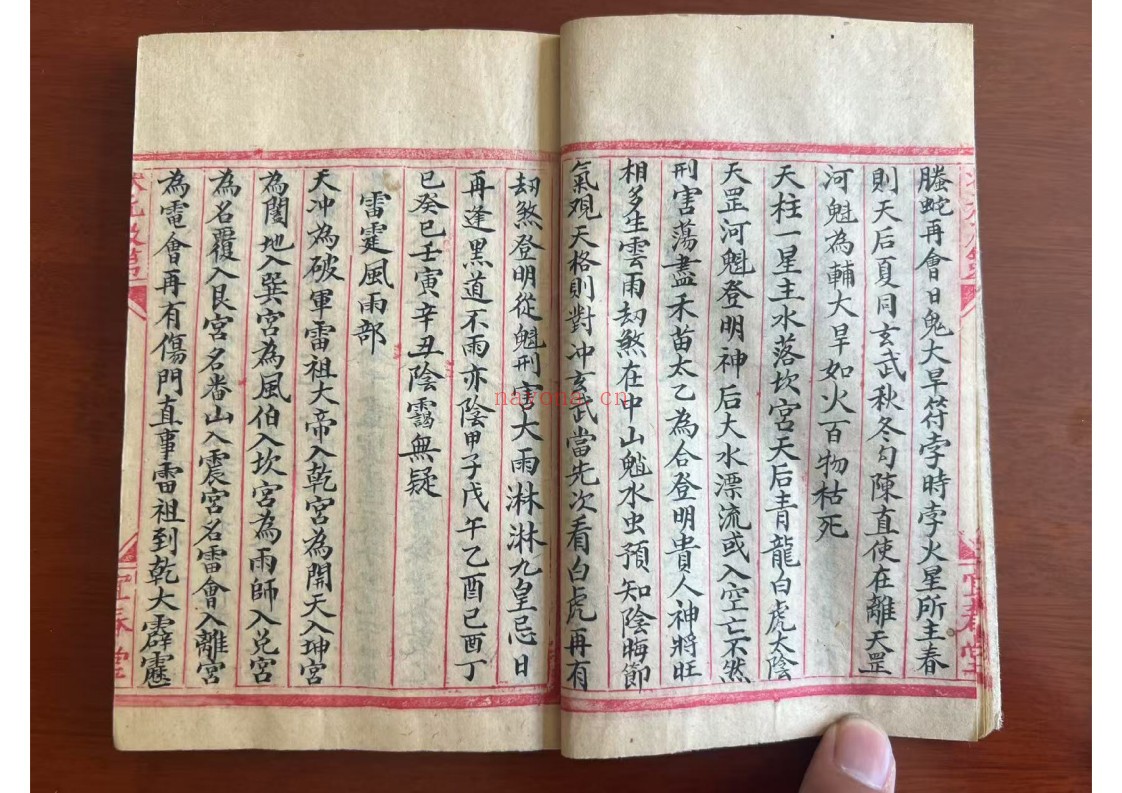 螣蛇再會日鬼大旱符孛時孛火星所主春
則天后夏同玄武秋冬勾陳直使在離天罡
河魁為輔大旱如火百物枯死
天柱一星主水落坎宮天后青龍白虎太陰
天罡河魁登明神后大水漂流或入空亡不然
刑害蕩盡禾苗太乙為合登明貴人神將旺
相多生雲雨劫煞在中山魈水虫預知陰晦節
氣观天格則對冲玄武當先次看白虎再有
劫煞登明從魁刑宫大雨淋淋九皇忌日
再逢黑道不雨亦陰甲子戊午乙酉己酉丁
巳癸巳壬寅辛丑陰靄無疑
雷霆風雨部
天冲為破軍雷祖大帝入乾宮為開天入坤宮
為闔地入巽宮為風伯入坎宮為雨師入兑宮
為名覆入艮宮名畨山入震宮名雷會入離宮
為電會再有傷門直事雷祖到乾大霹靂
nayona.cn